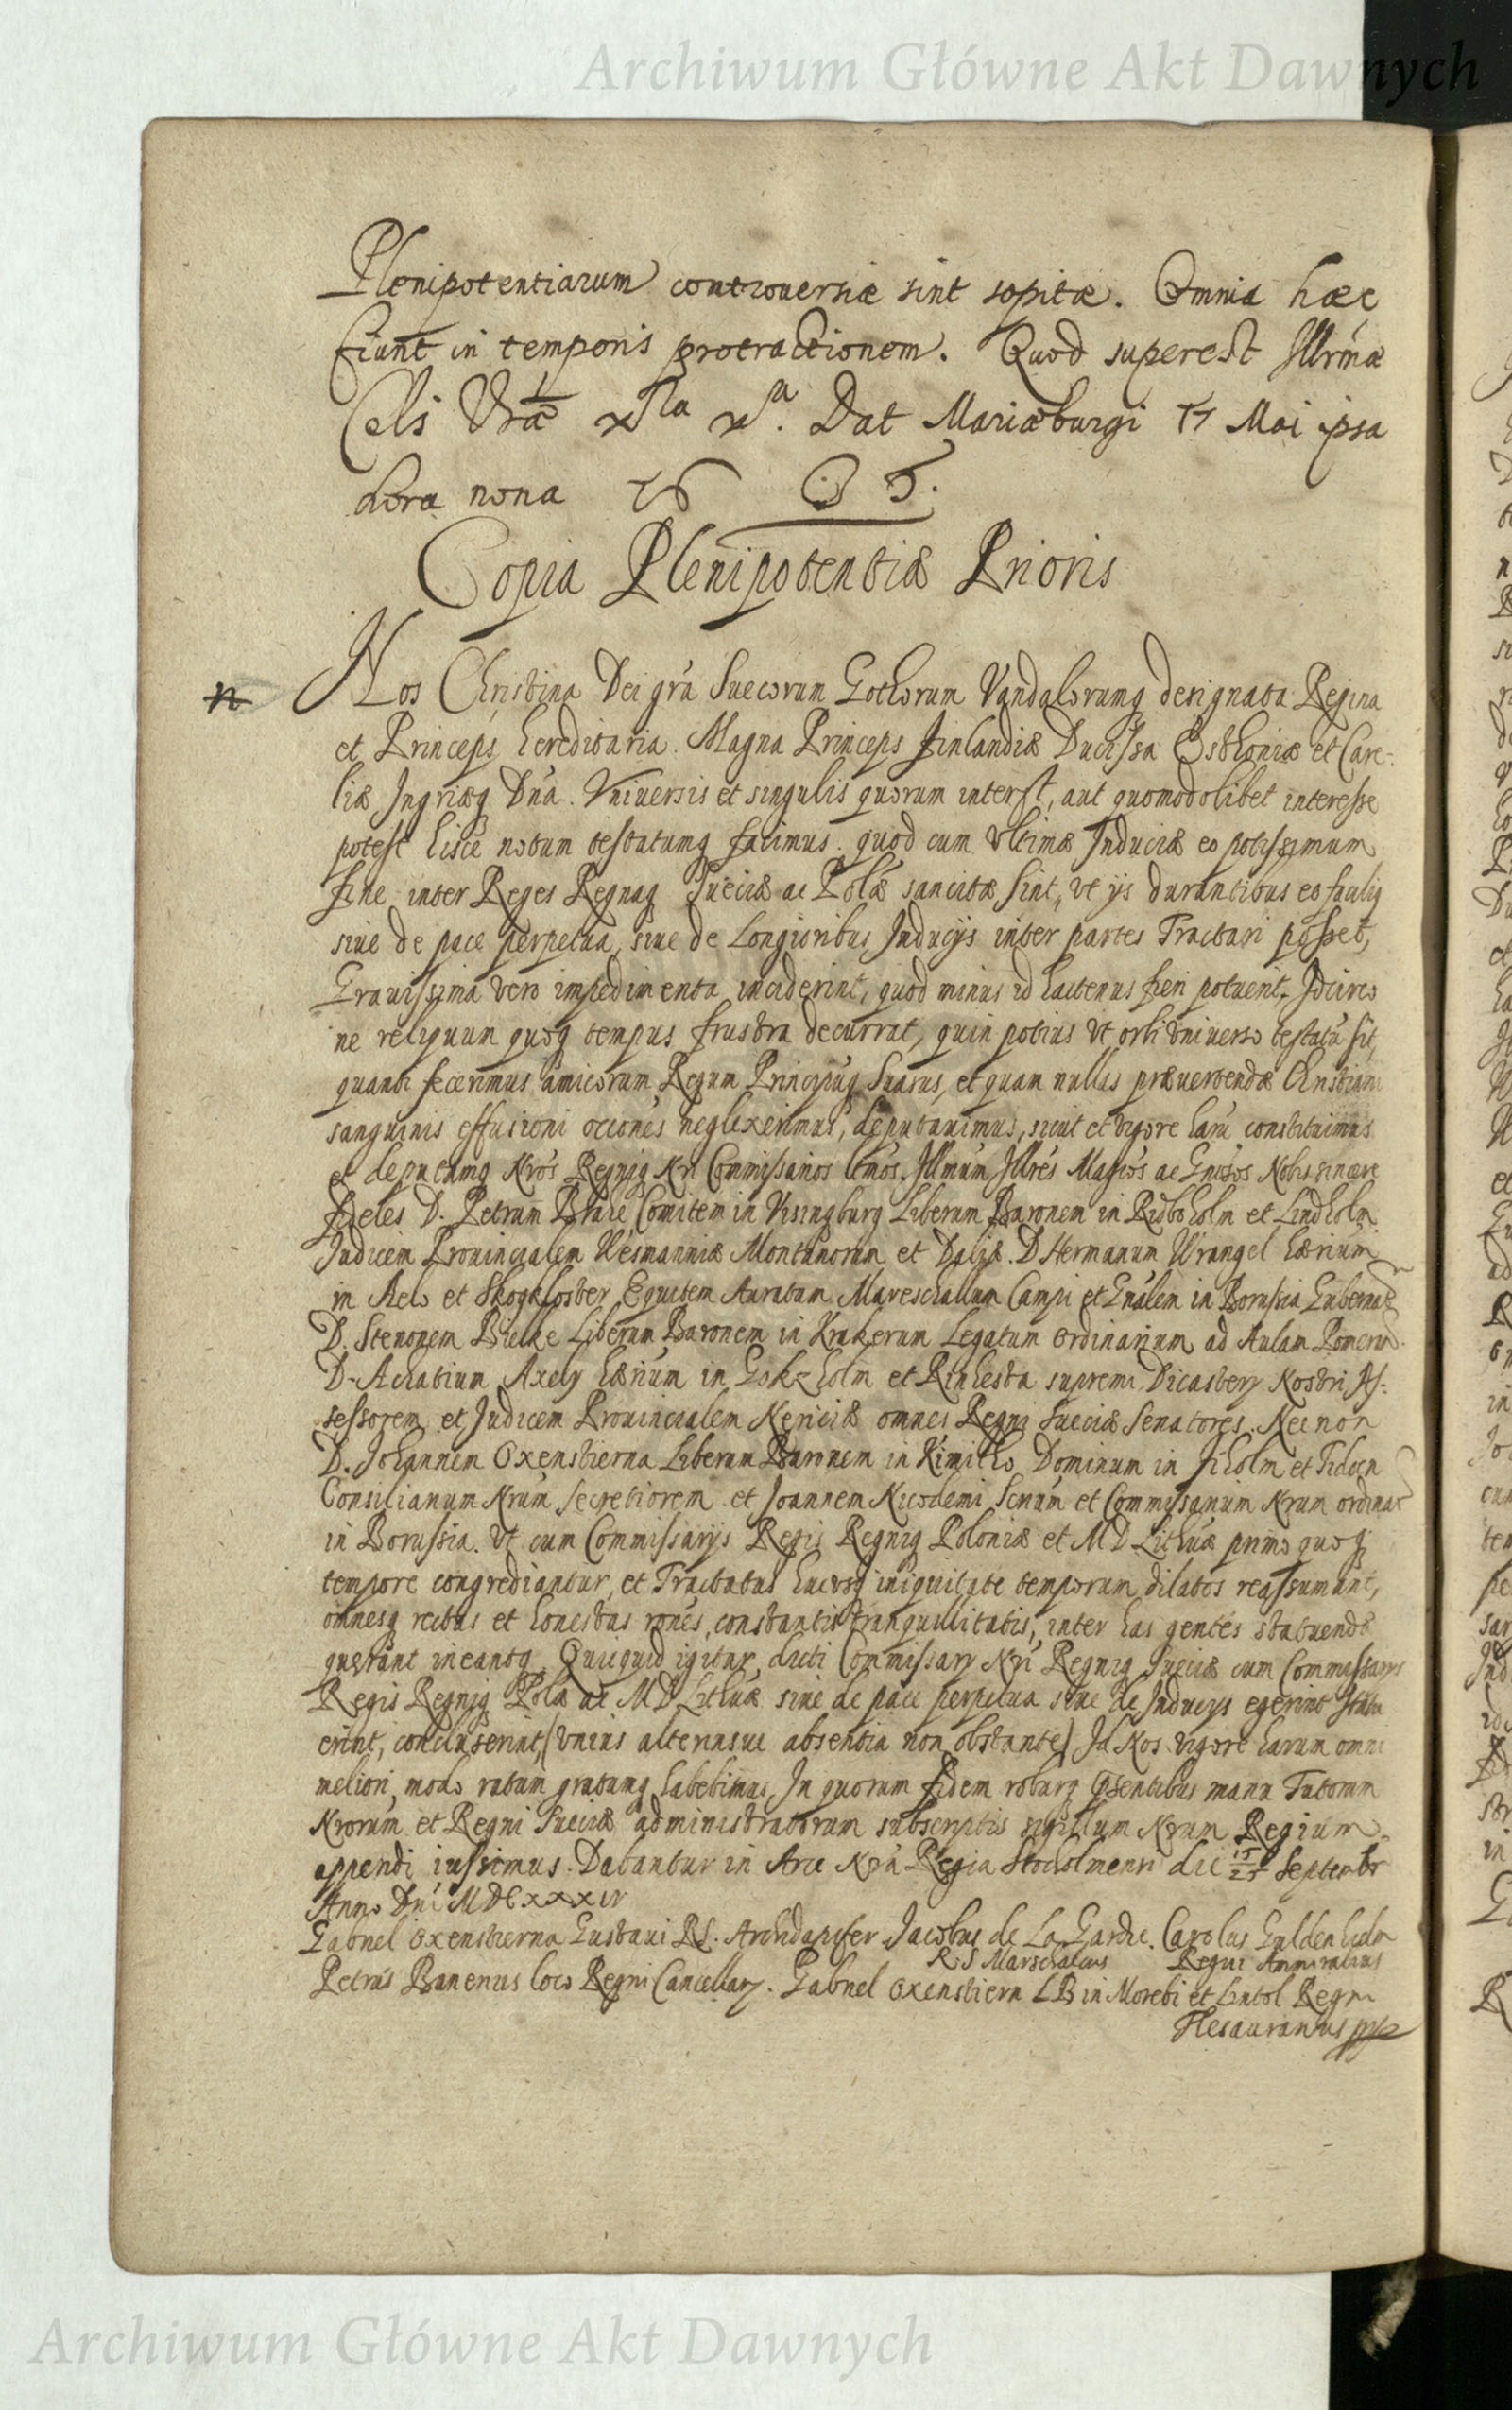 Archiwum Główne Akt Dawnych
Plenipotentiarum controuersiæ sint sopitæ. Omnia hæc
fiunt in temporis protractionem. Quod superest Illrmæ
Cels Vræ Dat Mariæburgi 17 Mai ipsa
hora nona 16 35.
Copia Plenipotentiæ Prioris
n
Nos Christina Dei grã Suecorum Gothorum Vandalorumq designata Regina
et Princeps hereditaria. Magna Princeps Finlandiæ Ducissa Esthoniæ et Care-
liæ Ingriæq Dña. Vniuersis et singulis quorum interest, aut quomodolibet interesse
potest hisce notum testatumq facimus. quod cum vltimæ Induciæ eo potissimum
fine inter Reges Regnaq Sueciæ ac Polæ sancitæ sint, vt ijs durantibus eo
siue de pace perpetua, siue de longioribus Inducijs inter partes Tractari posset,
Grauissima vero impedimenta inciderint, quod minus id hactenus fieri potuerit. Idcirco
ne reliquum quoq tempus frustra decurrat, quin potius vt orbi vniuerso testatũ sit,
quanti fecerimus amicorum Regum Principũq suasus, et quam nullas præuertendæ Christiani
sanguinis effusioni occiones neglexerimus, deputauimus, sicut et vigore harũ constituimus
et deputamq Nros Regniq Nri Commissarios Illmum Illres Magcos ac Gnosos Nobis sincere
fideles D. Petrum Brahe Comitem in Visingburg Liberum Baronem in Ridboholm et Lindholm
Judicem Prouincialem Wesmanniæ Montanorum et Daliæ. D Hermanum Wrangel hærium
in et Skogkloster Equitem Auratum Mareschallum Campi et Gnãlem in Borussia Gubernat
D. Stenonem Bielke Liberum Baronem in Krakerum Legatum ordinarium ad Aulam Pomeran
D. Achatium Axely hærium in Gokzholm et Rinhesta supremi Dicastery Nostri As-
sessorem et Judicem Prouincialem Nericiæ omnes Regni Sueciæ Senatores. Necnon
D. Johannem Oxenstierna Liberum Baronem in Kimitho Dominum in Fiholm et Tidoen
Consiliarium Nrum secretiorem et Joannem Nicodemi Scrium et Commissarium Nrum ordinar
in Borussia. Vt cum Commissarijs Regis Regniq Poloniæ et MD Lithuæ primo quoq
tempore congrediantur, et Tractatus hucusq iniquitate temporum dilatos reassumant,
omnesq rectas et honestas rones, constantis tranquillitatis, inter has gentes statuendæ
querant ineantq. Quicquid igitur dicti Commissary Nri Regniq Sueciæ cum Commissarijs
Regis Regniq Polæ ac MD Lithuæ siue de pace perpetua siue de Inducys egerint statu
erint, concluserint, (vnius alteriusue absentia non obstante) Id Nos vigore harum omni
meliori modo ratum gratumq habebimus, In quorum fidem roburq præsentibus manu Tutorum
Nrorum et Regni Sueciæ administratorum subscriptis sigillum Nrum Regium
appendi iussimus. Dabantur in Arce Nrã Regia Stocholmensi die 15/25 Septembr
Anno Dni MDCxxxiv
Gabriel Oxenstierna Gustaui RS. Archdapifer Jacobus de La Gardie. Carolus Guldenhelm
R.S Marschalcus Regni Ammiralius
Petrus Banerius loco Regni Cancellary. Gabriel Oxenstiern LB in Morebi et Lintol Regni
Thesaurarius
Archiwum Główne Akt Dawnych